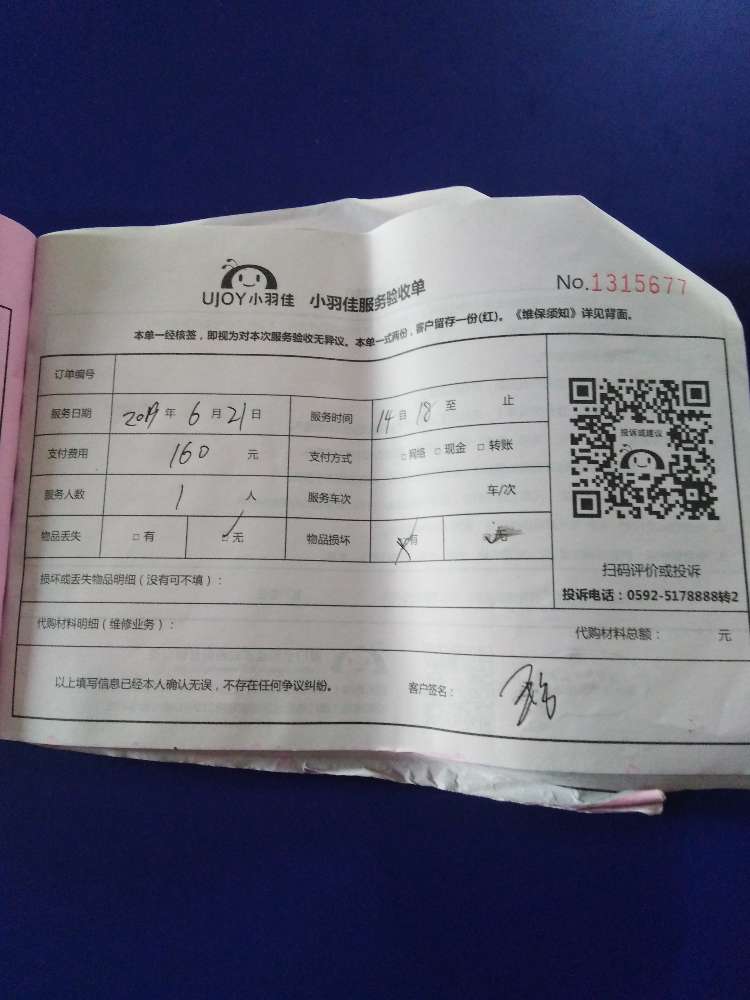 UJOY小羽佳 小羽佳服务验收单 No.1315677
本单一经核签，即视为对本次服务验收无异议。本单一式两份，客户留存一份(红)。《维保须知》详见背面。
订单编号
服务日期 2019年6月21日 服务时间 14自18至 止
支付费用 160 元 支付方式 □网络 □现金 □转账
服务人数 1 人 服务车次 车/次
物品丢失 □有 □无 物品损坏 有 无
损坏或丢失物品明细（没有可不填）：
代购材料明细（维修业务）： 代购材料总额： 元
以上填写信息已经本人确认无误，不存在任何争议纠纷。 客户签名：
投诉或建议
扫码评价或投诉
投诉电话：0592-5178888转2